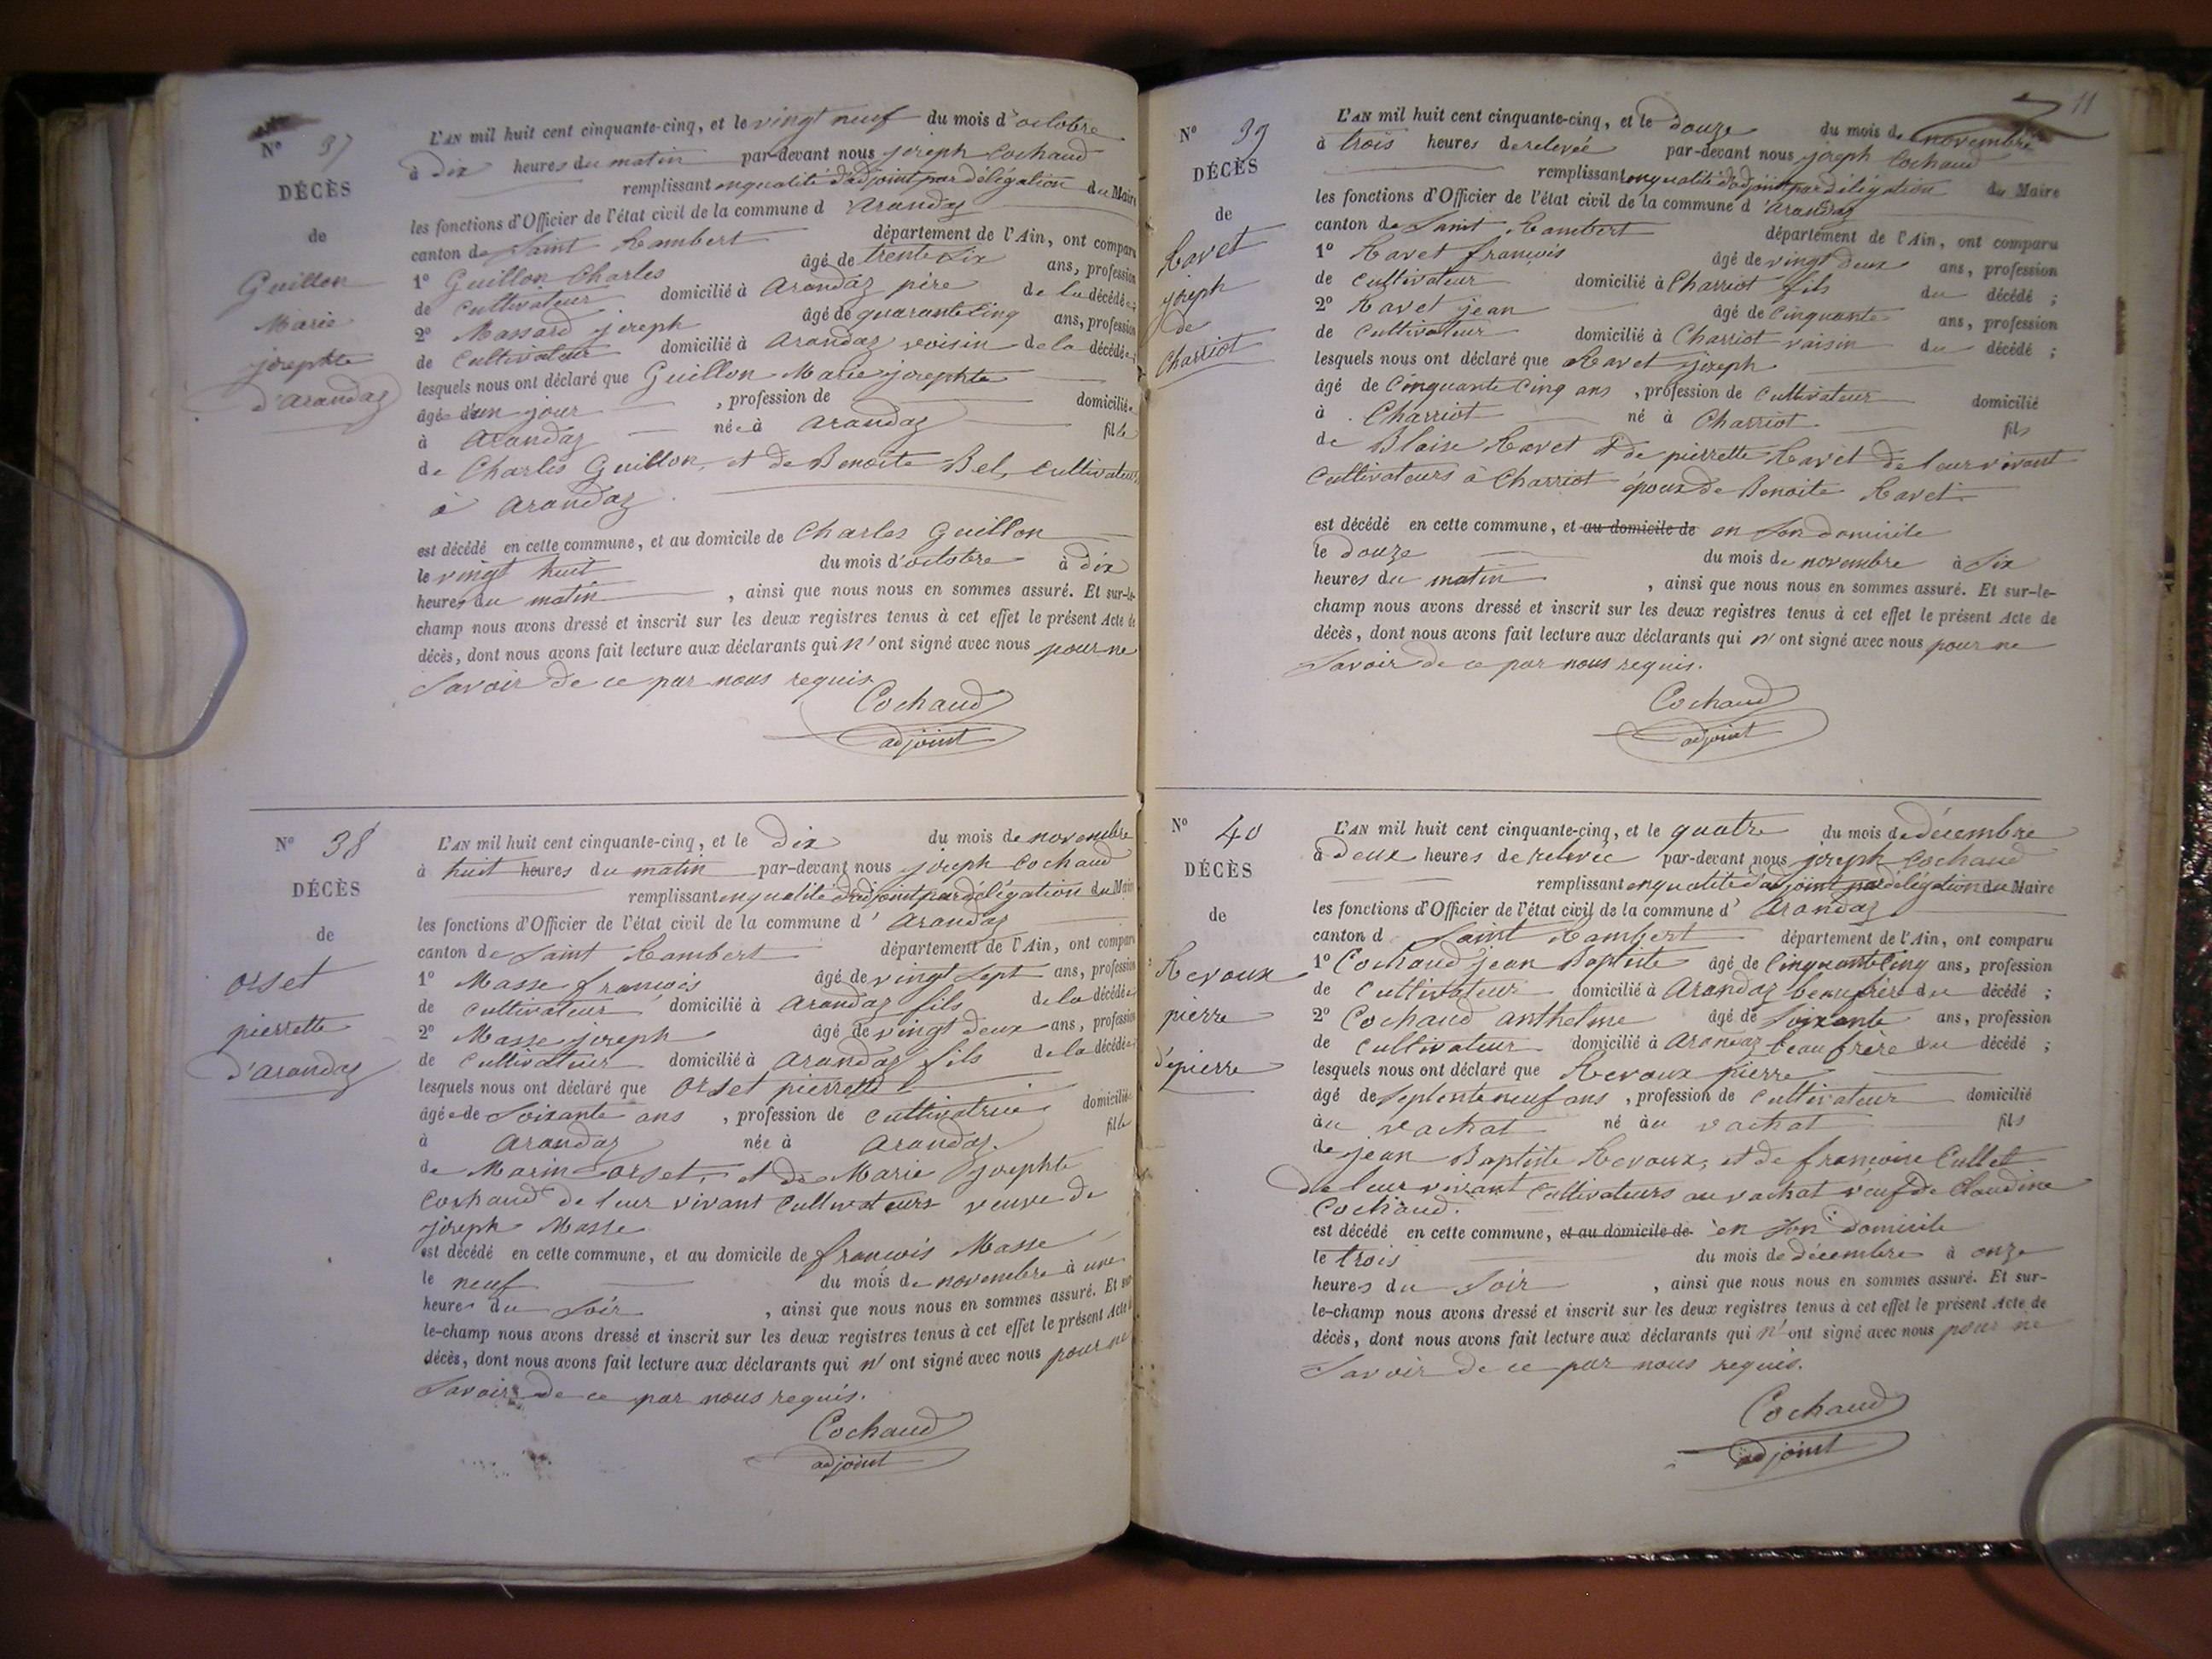 N° 37
DÉCÈS
de
Guillon
Marie
josephte
d'arandaz
L'AN mil huit cent cinquante-cinq, et le vingt neuf du mois d'octobre
à dix heures du matin par-devant nous joseph Cochaud
remplissant en qualité d'adjoint par délégation du Maire
les fonctions d'Officier de l'état civil de la commune d arandaz
canton de Saint Rambert département de l'Ain, ont comparu
1° Guillon Charles âgé de trente six ans, profession
de cultivateur domicilié à Arandaz père de la décédée ;
2° Massard joseph âgé de quarante cinq ans, profession
de cultivateur domicilié à Arandaz voisin de la décédée ;
lesquels nous ont déclaré que Guillon Marie josephte
âgée d'un jour , profession de domiciliée
à Arandaz née à arandaz fille
de Charles Guillon, et de Benoite Bel, cultivateurs
à arandaz.
est décédé en cette commune, et au domicile de Charles Guillon
le vingt huit du mois d'octobre à dix
heures du matin , ainsi que nous nous en sommes assuré. Et sur-le-
champ nous avons dressé et inscrit sur les deux registres tenus à cet effet le présent Acte de
décès, dont nous avons fait lecture aux déclarants qui n'ont signé avec nous pour ne
savoir de ce par nous requis
Cochaud
adjoint
N° 38
DÉCÈS
de
orset
pierrette
d'arandaz
L'AN mil huit cent cinquante-cinq, et le dix du mois de novembre
à huit heures du matin par-devant nous joseph Cochaud
remplissant en qualité d'adjoint par délégation du Maire
les fonctions d'Officier de l'état civil de la commune d' arandaz
canton de Saint Rambert département de l'Ain, ont comparu
1° Masse françois âgé de vingt sept ans, profession
de cultivateur domicilié à arandaz fils de la décédée
2° Masse joseph âgé de vingt deux ans, profession
de cultivateur domicilié à arandaz fils de la décédée
lesquels nous ont déclaré que orset pierrette
âgée de Soixante ans , profession de cultivatrice domiciliée
à arandaz née à arandaz. fille
de Marin orset, et de Marie josephte
Cochaud de leur vivant Cultivateurs veuve de
joseph Masse
est décédé en cette commune, et au domicile de françois Masse
le neuf du mois de novembre à une
heure du soir , ainsi que nous nous en sommes assuré. Et sur
le-champ nous avons dressé et inscrit sur les deux registres tenus à cet effet le présent Acte d
décès, dont nous avons fait lecture aux déclarants qui n'ont signé avec nous pour ne
savoir de ce par nous requis.
Cochaud
adjoint
11
N° 39
DÉCÈS
de
Ravet
joseph
de
Charriot
L'AN mil huit cent cinquante-cinq, et le douze du mois de novembre
à trois heures de relevée par-devant nous joseph Cochaud
remplissant en qualité d'adjoint par délégation du Maire
les fonctions d'Officier de l'état civil de la commune d arandaz
canton de Saint Rambert département de l'Ain, ont comparu
1° Ravet françois âgé de vingt deux ans, profession
de cultivateur domicilié à Charriot fils du décédé ;
2° Ravet jean âgé de cinquante ans, profession
de cultivateur domicilié à Charriot voisin du décédé ;
lesquels nous ont déclaré que Ravet joseph
âgé de cinquante cinq ans , profession de cultivateur domicilié
à Charriot né à Charriot fils
de Blaise Ravet & de pierrette Ravet de leur vivant
cultivateurs à Charriot époux de Benoite Ravet.
est décédé en cette commune, et au domicile de en son domicile
le douze du mois de novembre à six
heures du matin , ainsi que nous nous en sommes assuré. Et sur-le-
champ nous avons dressé et inscrit sur les deux registres tenus à cet effet le présent Acte de
décès, dont nous avons fait lecture aux déclarants qui n'ont signé avec nous pour ne
savoir de ce par nous requis.
Cochaud
adjoint
N° 40
DÉCÈS
de
Revoux
pierre
d'épierre
L'AN mil huit cent cinquante-cinq, et le quatre du mois de décembre
à deux heures de relevée par-devant nous joseph Cochaud
remplissant en qualité d'adjoint par délégation du Maire
les fonctions d'Officier de l'état civil de la commune d' Arandaz
canton d Saint Rambert département de l'Ain, ont comparu
1° Cochaud jean Baptiste âgé de cinquante cinq ans, profession
de cultivateur domicilié à Arandaz beau frère du décédé ;
2° Cochaud anthelme âgé de soixante ans, profession
de cultivateur domicilié à Arandaz beau frère du décédé ;
lesquels nous ont déclaré que Revoux pierre
âgé de septente neuf ans , profession de cultivateur domicilié
au vachat né au vachat fils
de jean Baptiste Revoux, et de françoise Cullet
de leur vivant cultivateurs au vachat veuf de Claudine
Cochaud.
est décédé en cette commune, et au domicile de en son domicile
le trois du mois de décembre à onze
heures du soir , ainsi que nous nous en sommes assuré. Et sur-
le-champ nous avons dressé et inscrit sur les deux registres tenus à cet effet le présent Acte de
décès, dont nous avons fait lecture aux déclarants qui n'ont signé avec nous pour ne
savoir de ce par nous requis.
Cochaud
adjoint